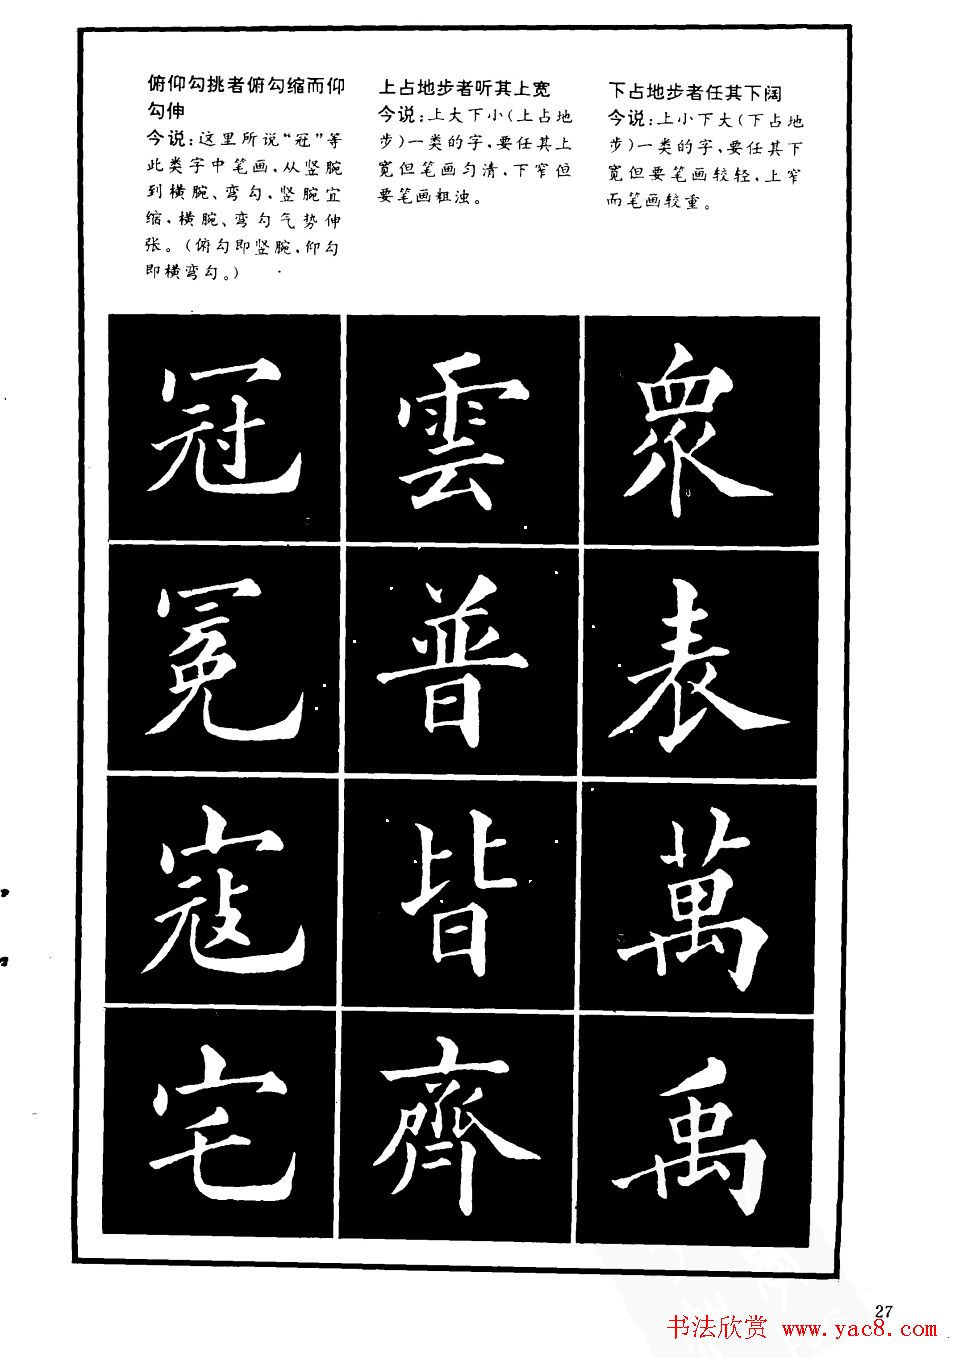 俯仰勾挑者俯勾缩而仰
勾伸
今说:这里所说“冠”等
此类字中笔画,从竖腕
到横腕、弯勾,竖腕宜
缩,横腕、弯勾气势伸
张。(俯勾即竖腕,仰勾
即横弯勾。)
上占地步者听其上宽
今说:上大下小(上占地
步)一类的字,要任其上
宽但笔画匀清,下窄但
要笔画粗浊。
下占地步者任其下阔
今说:上小下大(下占地
步)一类的字,要任其下
宽但要笔画较轻,上窄
而笔画较重。
冠 雲 眾
冕 普 表
寇 皆 萬
宅 齊 禹
27
书法欣赏 www.yac8.com